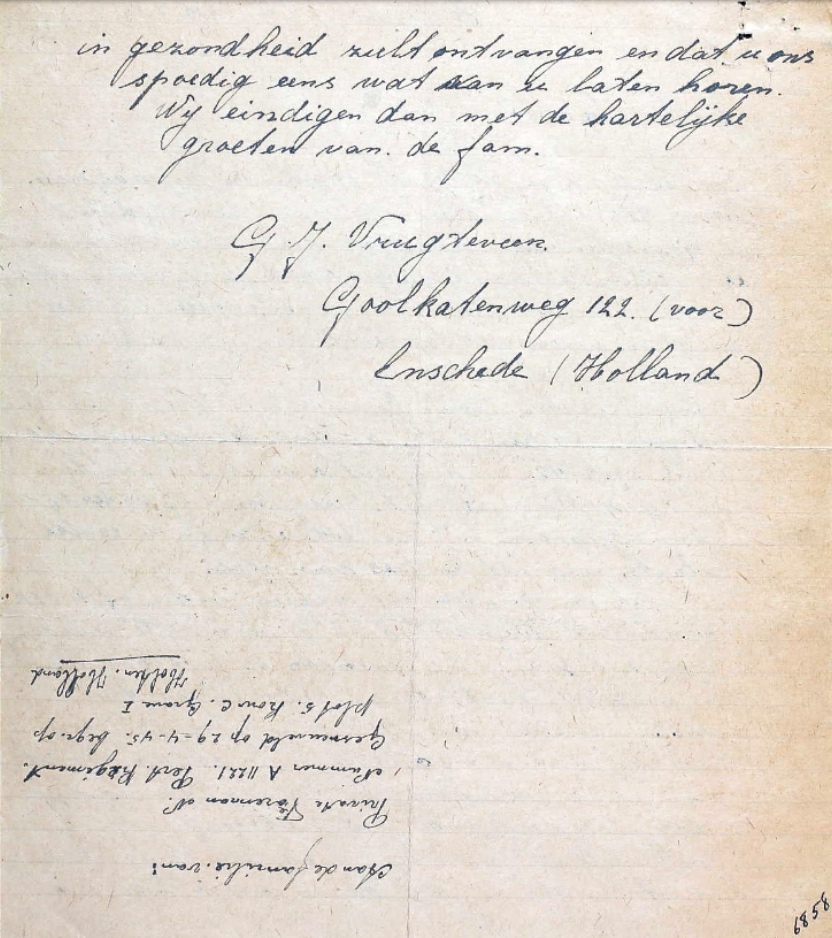 in gezondheid zult ontvangen en dat u ons
spoedig eens wat van u laten horen.
Wij eindigen dan met de hartelijke
groeten van. de fam.
G. J. Vrugteveen.
Goolkatenweg 122. (voor)
Enschede (Holland)
Aan de familie. van:
Private Foreman N.
Nummer A 1122 1. Pert. Regiment.
Gesneuveld op 29-4-45. begr. op
plot 5. Row C. Grave I
Holten. Holland
6858